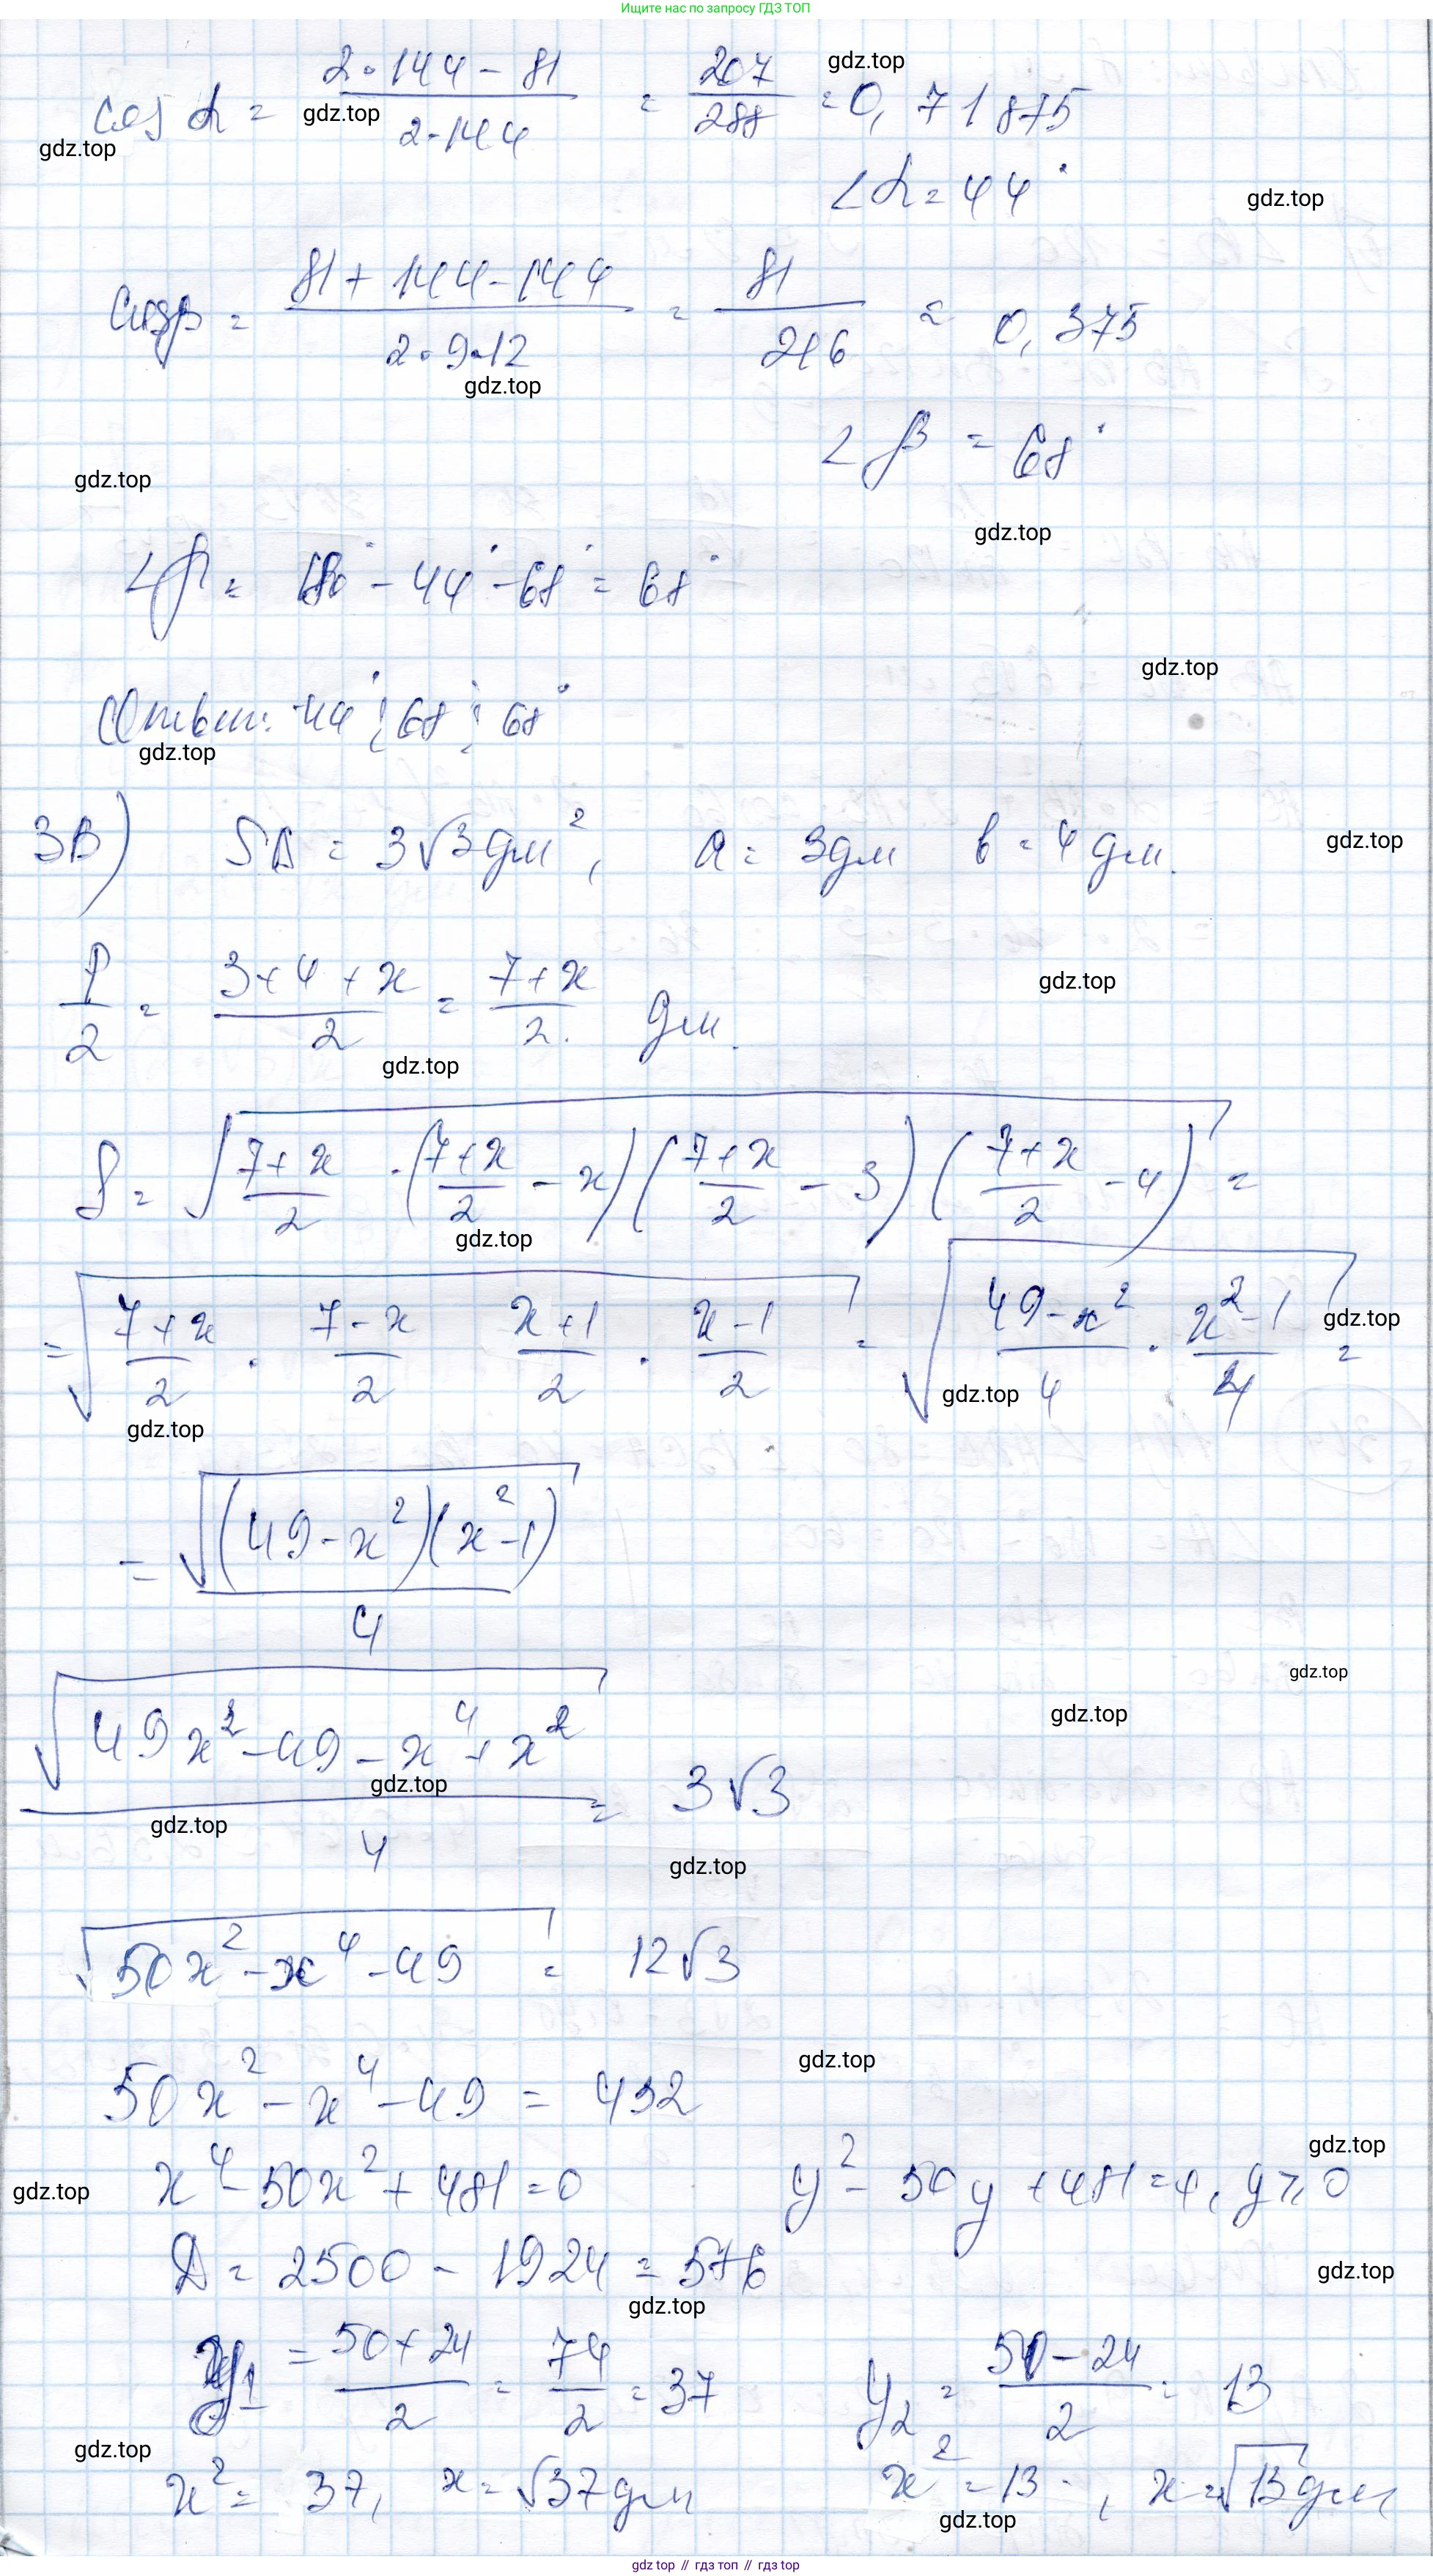 Ищите нас по запросу ГДЗ ТОП
cos α = (2·144 - 81)/(2·144) = 207/288 = 0,71875
gdz.top
gdz.top
gdz.top
∠α = 44°
gdz.top
cos β = (81 + 144 - 144)/(2·9·12) = 81/216 = 0,375
gdz.top
∠β = 68°
gdz.top
gdz.top
180° - 44° - 68° = 68°
gdz.top
Ответ: 44°; 68°; 68°
gdz.top
3В) SΔ = 3√3 дм², a = 3 дм в = 4 дм.
gdz.top
P/2 = (3+4+x)/2 = (7+x)/2 дм.
gdz.top
gdz.top
S = √((7+x)/2 · ((7+x)/2 - x)((7+x)/2 - 3)((7+x)/2 - 4)) =
gdz.top
= √((7+x)/2 · (7-x)/2 (x+1)/2 · (x-1)/2) = √((49-x²)/4 · (x²-1)/4) =
gdz.top
gdz.top
gdz.top
= √((49-x²)(x²-1))/4
gdz.top
gdz.top
√(49x²-49-x⁴+x²)/4 = 3√3
gdz.top
gdz.top
gdz.top
√(50x²-x⁴-49) = 12√3
gdz.top
50x²-x⁴-49 = 432
gdz.top
gdz.top
x⁴-50x²+481=0 y²-50y+481=4, y⩾0
D = 2500 - 1924 = 576
gdz.top
gdz.top
y₁ = (50+24)/2 = 74/2 = 37 y₂ = (50-24)/2 = 13
gdz.top
x² = 37, x = √37 дм x² = 13, x = √13 дм
gdz.top
gdz top // гдз топ // gdz top